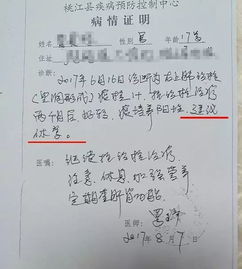 桃江县疾病预防控制中心
病情证明
姓名 性别 男 年龄 17岁
诊断
2017年6月16日诊断为右上肺结核
(空洞形成) 痰检1+ 抗结核治疗
两个月后好转, 痰培养阳性, 建议
休学。
医嘱: 继续抗结核治疗,
注意休息加强营养
定期查肝肾功能
2017年8月7日